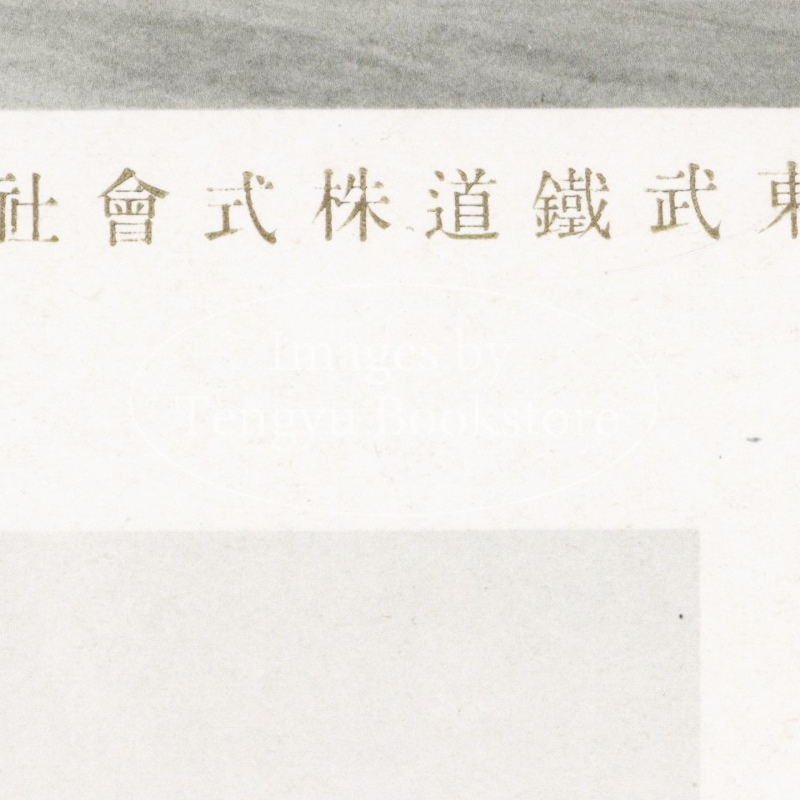 東武鐵道株式會社
Images by
Tengyu Bookstore